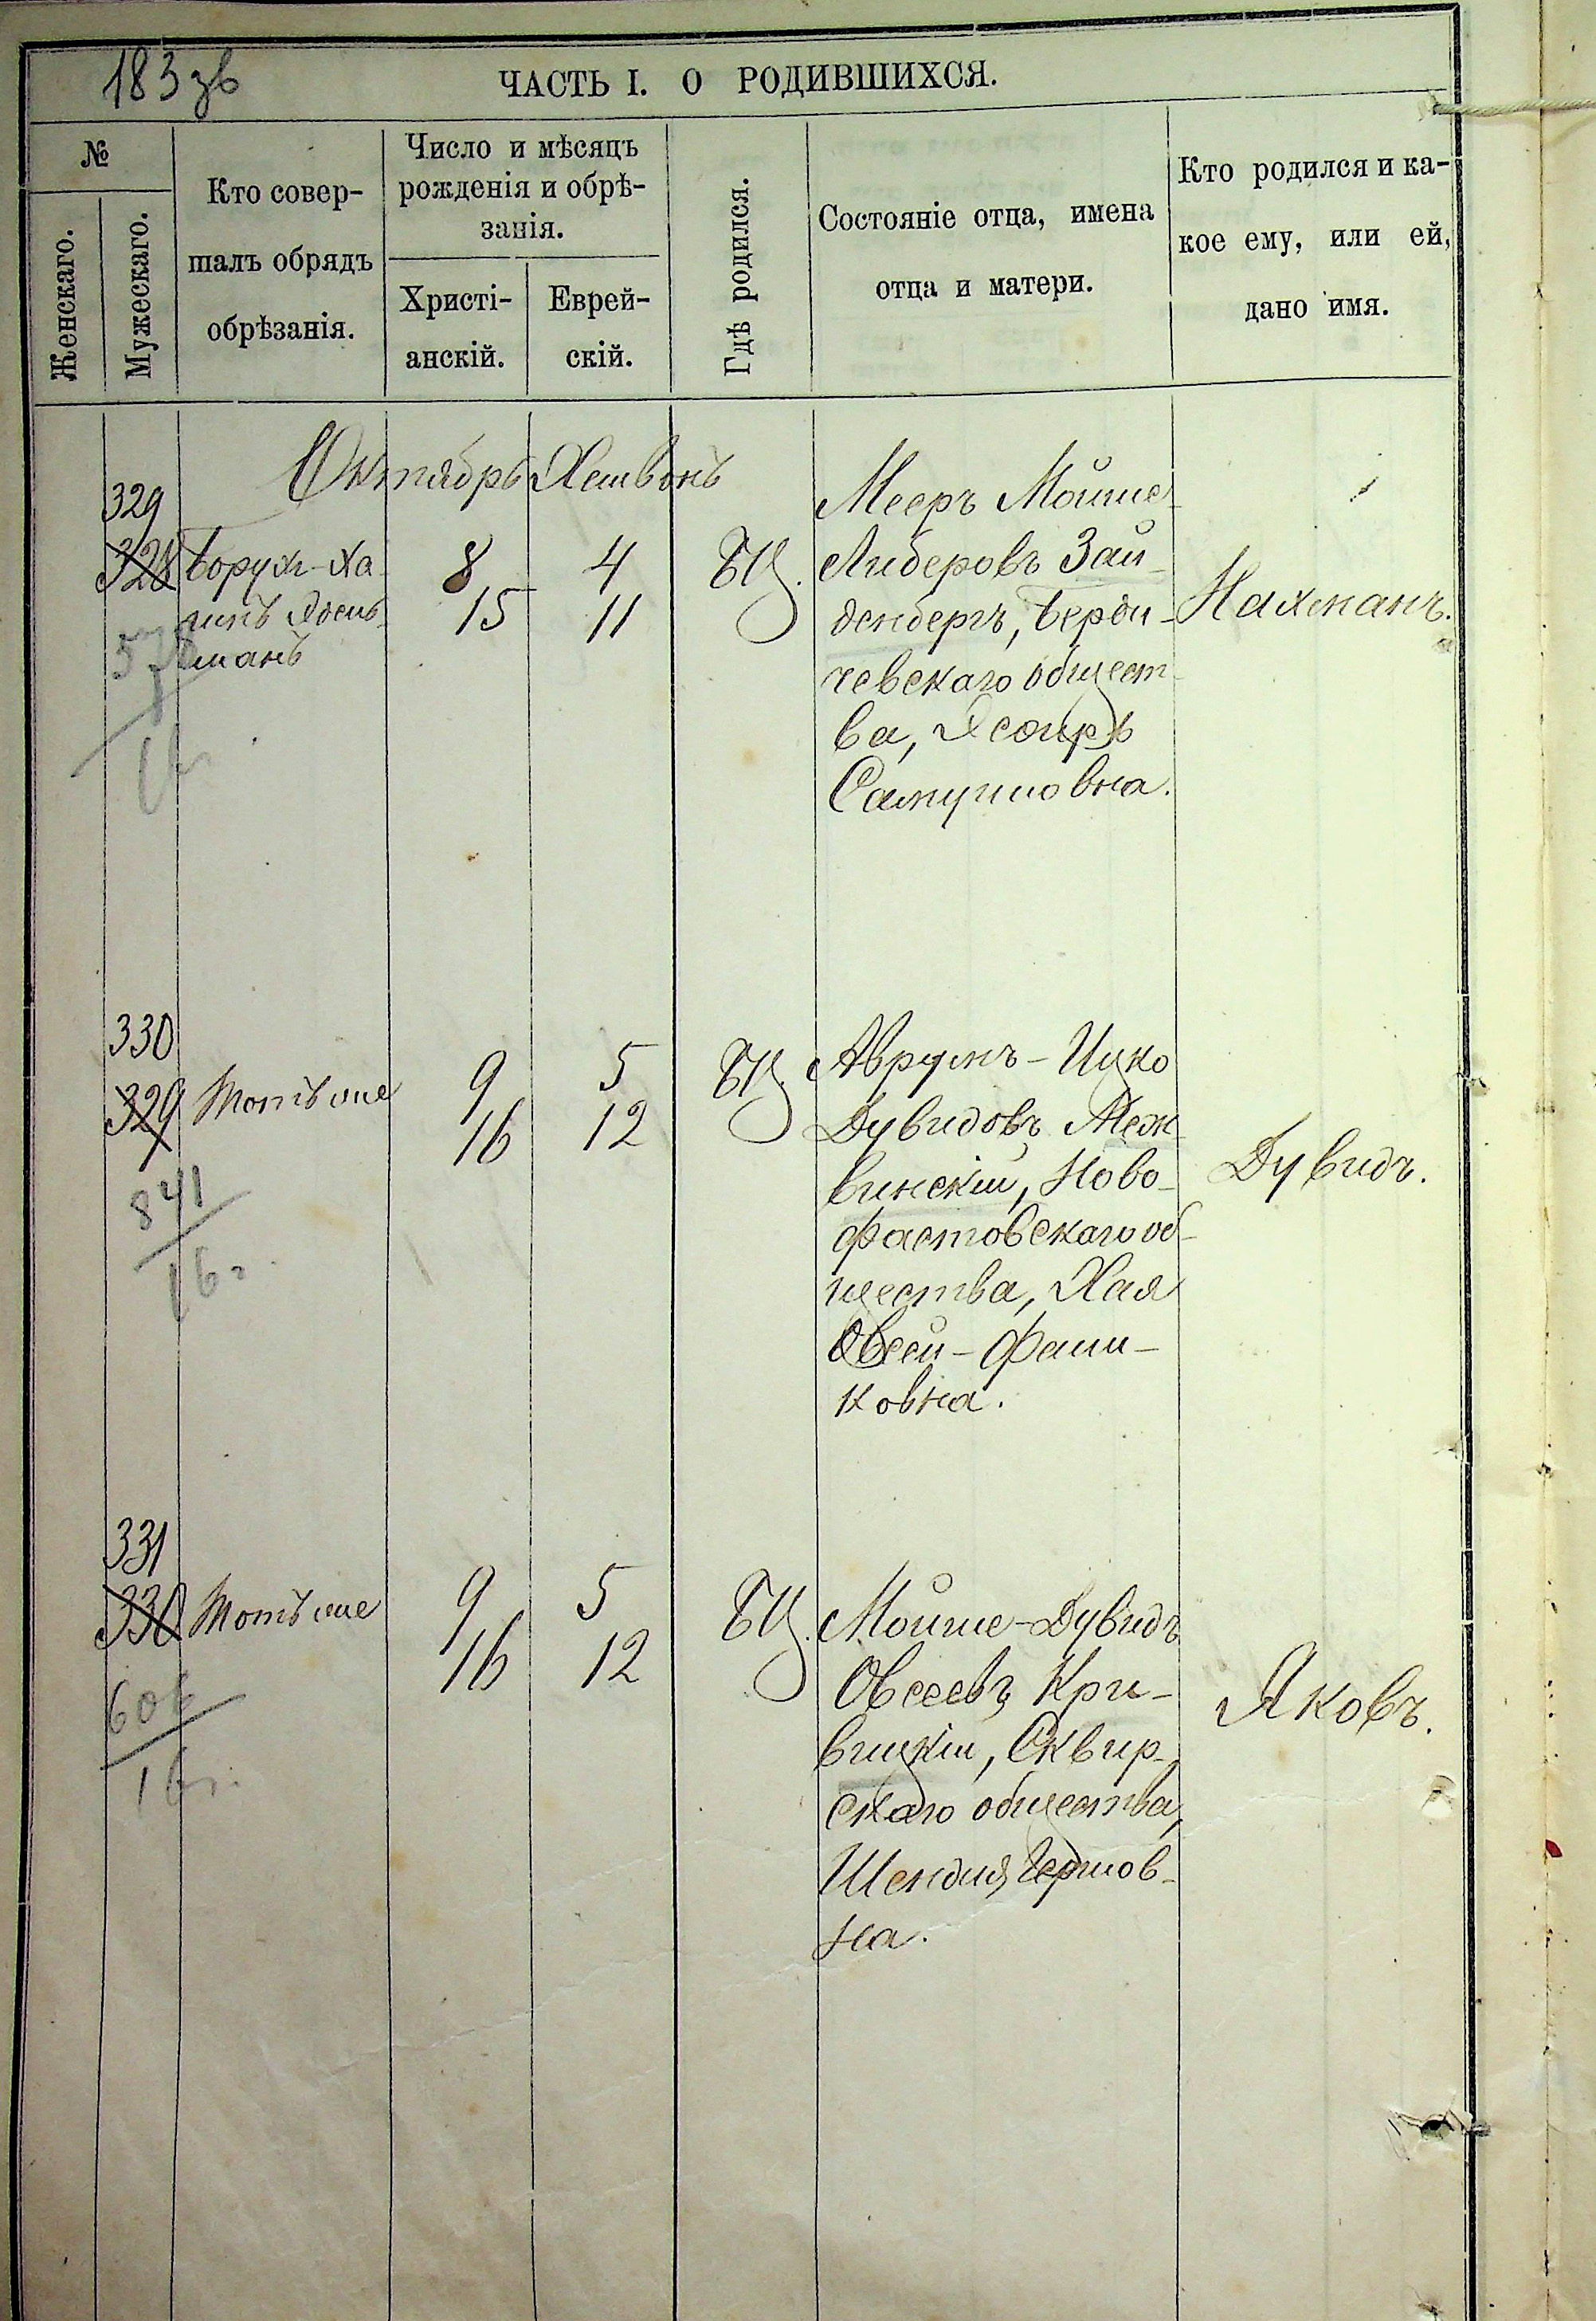 183 зв
ЧАСТЬ I. О РОДИВШИХСЯ.
№
Женскаго.
Мужескаго.
Кто совер-
шалъ обрядъ
обрѣзанія.
Число и мѣсяцъ
рожденія и обрѣ-
занія.
Христі-
анскій.
Еврей-
скій.
Гдѣ родился.
Состояніе отца, имена
отца и матери.
Кто родился и ка-
кое ему, или ей,
дано имя.
Октябрь Хешвонъ
329
328
Борухъ-Ха
имъ
манъ
8
15
4
11
БЦ.
Мееръ Мойше-
Лидеровъ Зай-
денбергъ, Берди-
чевскаго общест-
ва,
Самуиловна.
Нахманъ.
330
329
Тотъ же
9
16
5
12
БЦ.
Аврумъ-Ицко
Дувидовъ Меж-
винскій, Ново-
фастовскаго об-
щества, Хая
Овсей-Фаи-
ковна.
Дувидъ.
841
16г.
331
330
Тотъ же
9
16
5
12
БЦ.
Мойше-Дувидъ
Овсеевъ Кри-
вицкій, Сквир-
скаго общества,
Шендля Гершов-
на.
Яковъ.
16г.